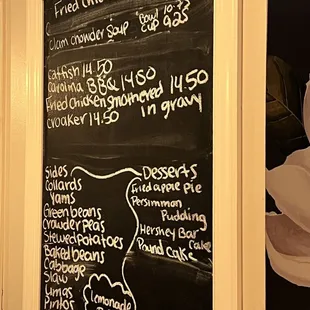 Fried
Clam chowder soup Bowl 10.33
Cup 9.25
Catfish 14.50
Carolina BBQ 14.50
Fried Chicken smothered 14.50
in gravy
croaker 14.50
Sides
Collards
Yams
Green beans
Crowder peas
Stewed potatoes
Baked beans
Cabbage
Slaw
Limas
Pintos
Desserts
Fried apple pie
Persimman
Pudding
Hershey Bar
Cake
Pound Cake
Lemonade